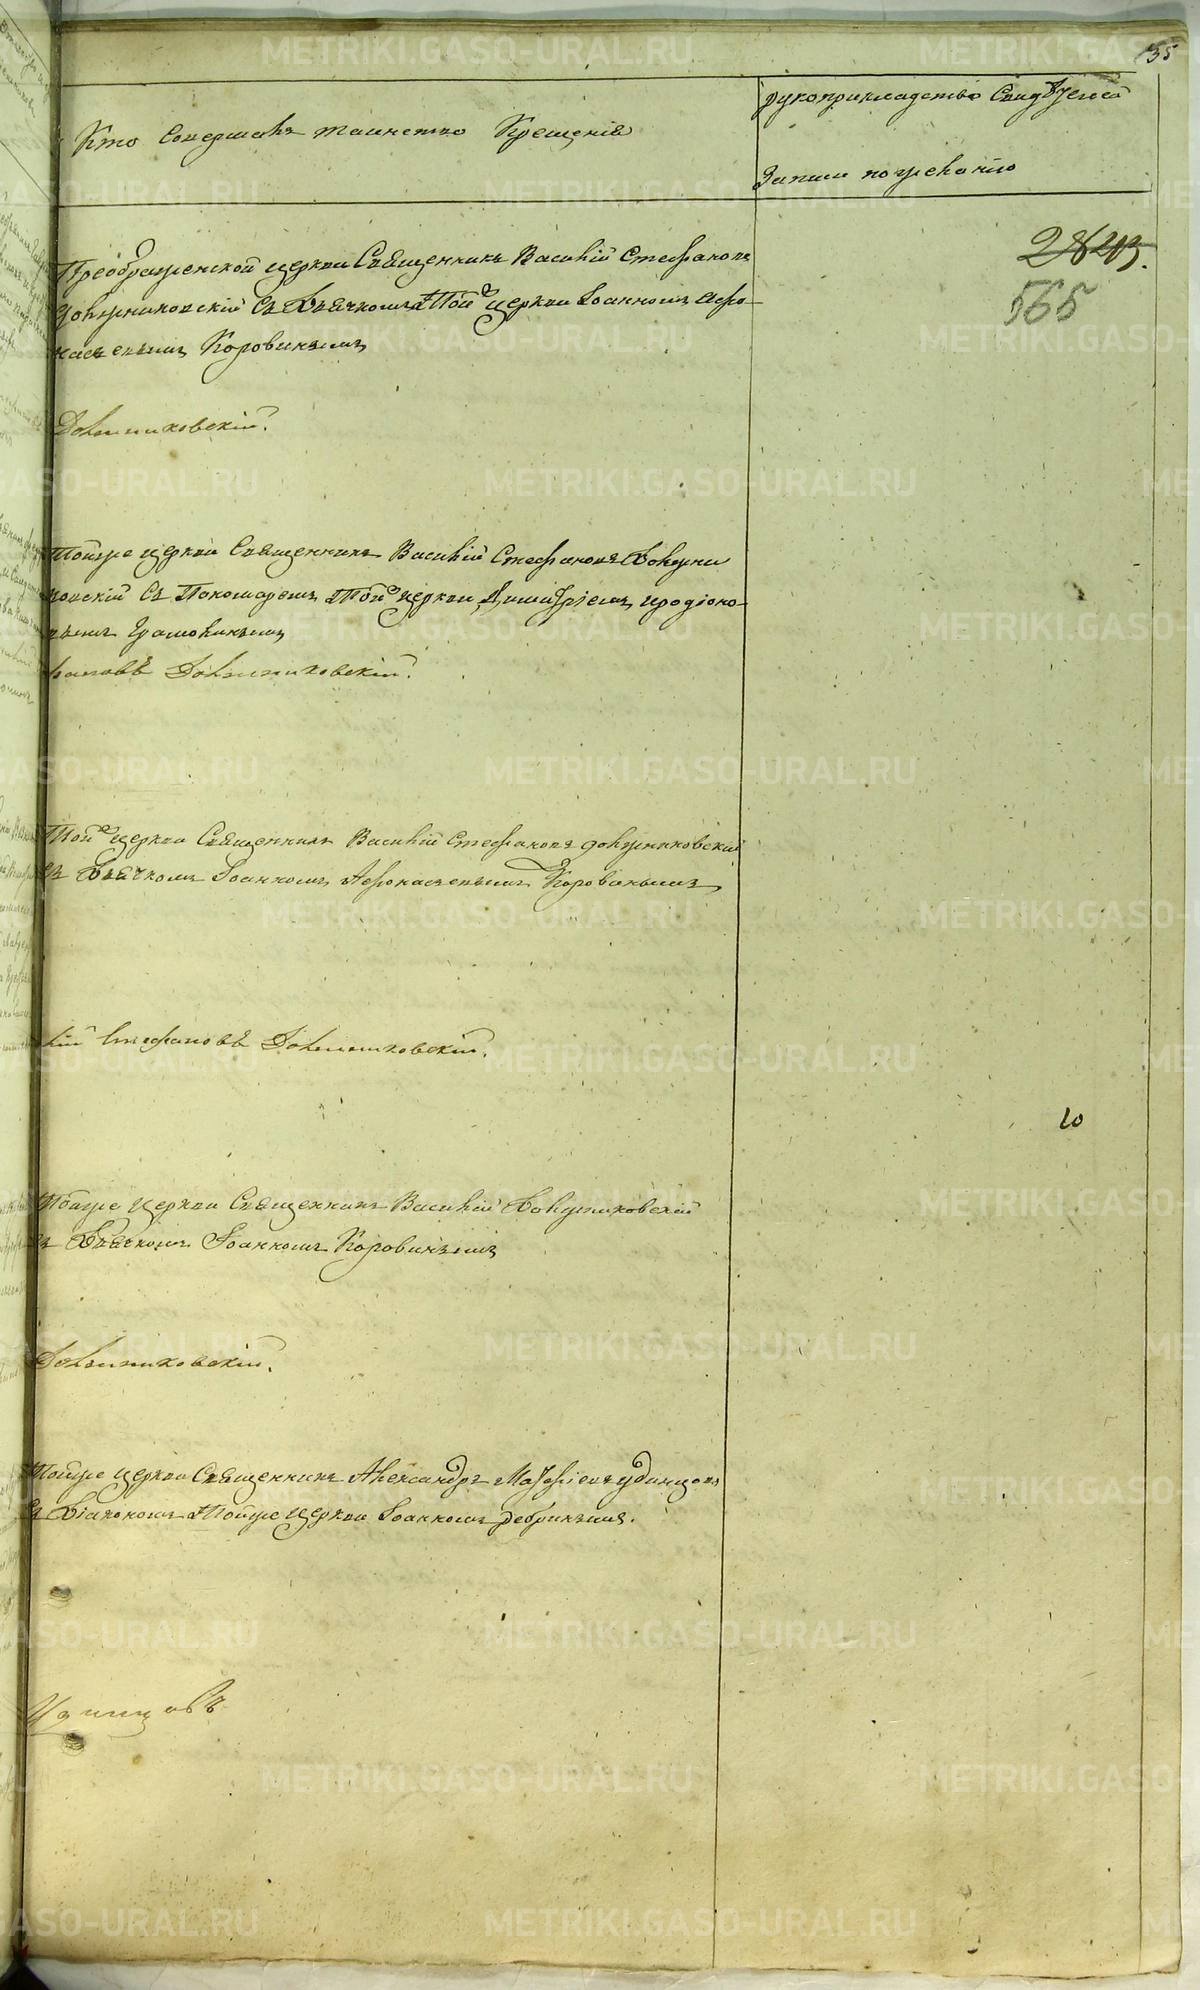 35
Кто Совершалъ таинство Крещенія
рукоприкладство Свидѣтелей
Записи по желанію
2843.
565
Преображенской церкви Священникъ Василій Стефановъ
Должниковскій Съ Дьячкомъ Той же церкви Іоанномъ Афо-
насьевымъ Коровинымъ
Должниковскій.
Тойже церкви Священникъ Василій Стефановъ Должни
ковскій Съ Пономаремъ Той же церкви Димитріемъ Иродіоно-
вымъ
фановъ Должниковскій.
Той же церкви Священникъ Василій Стефановъ Должниковскій
Съ Дьячкомъ Іоанномъ Афонасьевымъ Коровинымъ
лій Стефановъ Должниковскій.
10
Тойже церкви Священникъ Василій Должниковскій
Съ Дьячкомъ Іоанномъ Коровинымъ
Должниковскій.
Тойже церкви Священникъ Александръ Матфіевъ Удинцовъ
Съ Діакономъ Тойже церкви Іоанномъ Ребринымъ.
Удинцовъ
METRIKI.GASO-URAL.RU